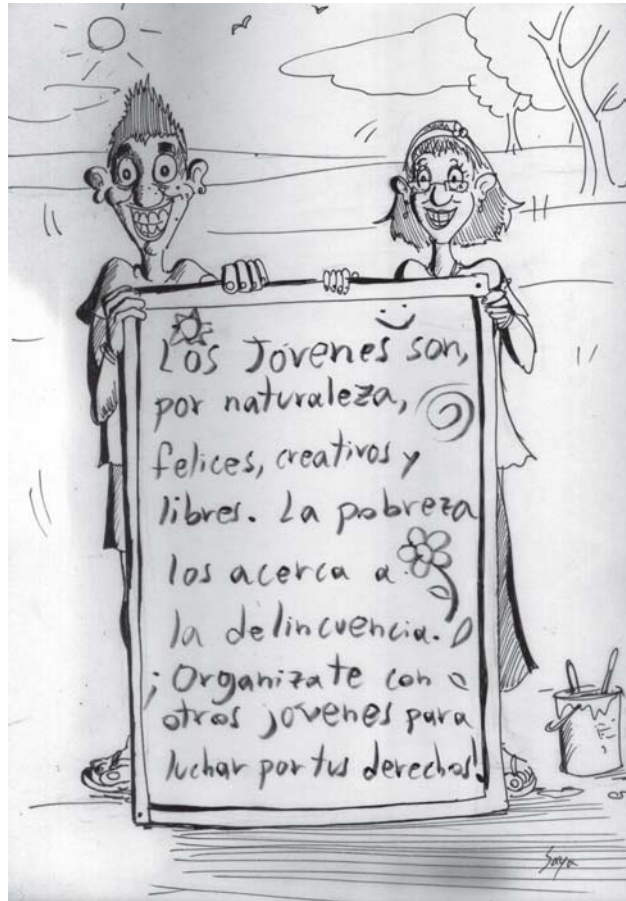 Los Jóvenes son,
por naturaleza,
felices, creativos y
libres. La pobreza
los acerca a
la delincuencia.
¡Organizate con
otros jóvenes para
luchar por tus derechos!
Saya